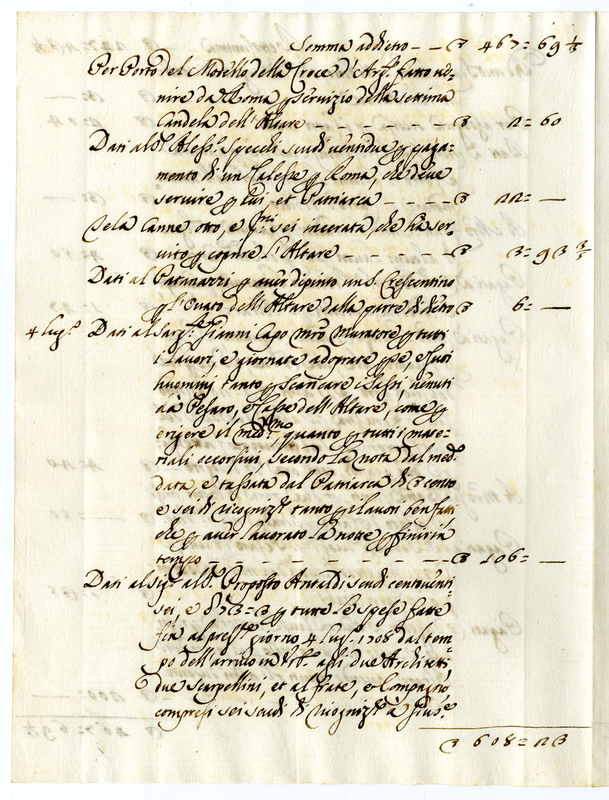 Somma addietro - - ꝺ 467=69 1/3
Per Porto del Modello della Croce d'Arg.to fatto ve-
nire da Roma p servizio della settima
Candela dell'Altare - - - - - - ꝺ 2=60
Dati al S.r Aless.o Specchi scudi ventidue p paga-
mento di un Calesse p Roma, che deve
servire p lui, et Patriarca - - - - ꝺ 22=—
tela Canne otto, e p.mi sei incerata, che ha ser-
vito p coprire l'Altare - - - - - ꝺ 3=93
Dati al Patanazzi p aver dipinto un S. Crescentino
p l'Ovato dell'Altare dalla parte di dietro ꝺ 6=—
4 Lug.o Dati al Gianni Capo m.ro Muratore p tutti
i lavori, e giornate adoprate p se, e suoi
huomini tanto p scaricare i sassi venuti
da Pesaro, e Casse dell'Altare, come p
erigere il med.mo, quanto p tutti i mate-
riali occorsivi, secondo la nota dal med.o
data, e tassata dal Patriarca di ꝺ cento
e sei di recogniz.e tanto p i lavori ben fatti
che p aver lavorato la notte p finir in
tempo - - - - - - - - - ꝺ 106=—
Dati al Sig.r Proposto Antaldi scudi centoventi-
sei, e p tutte le spese fatte
fin al pres.te giorno 4 Lug.o 1708 dal tem-
po dell'arrivo in Urb.o agli due Architetti,
due scarpellini, et al frate, e Compagno,
compresi sei scudi di recogniz.e à
ꝺ 608=23